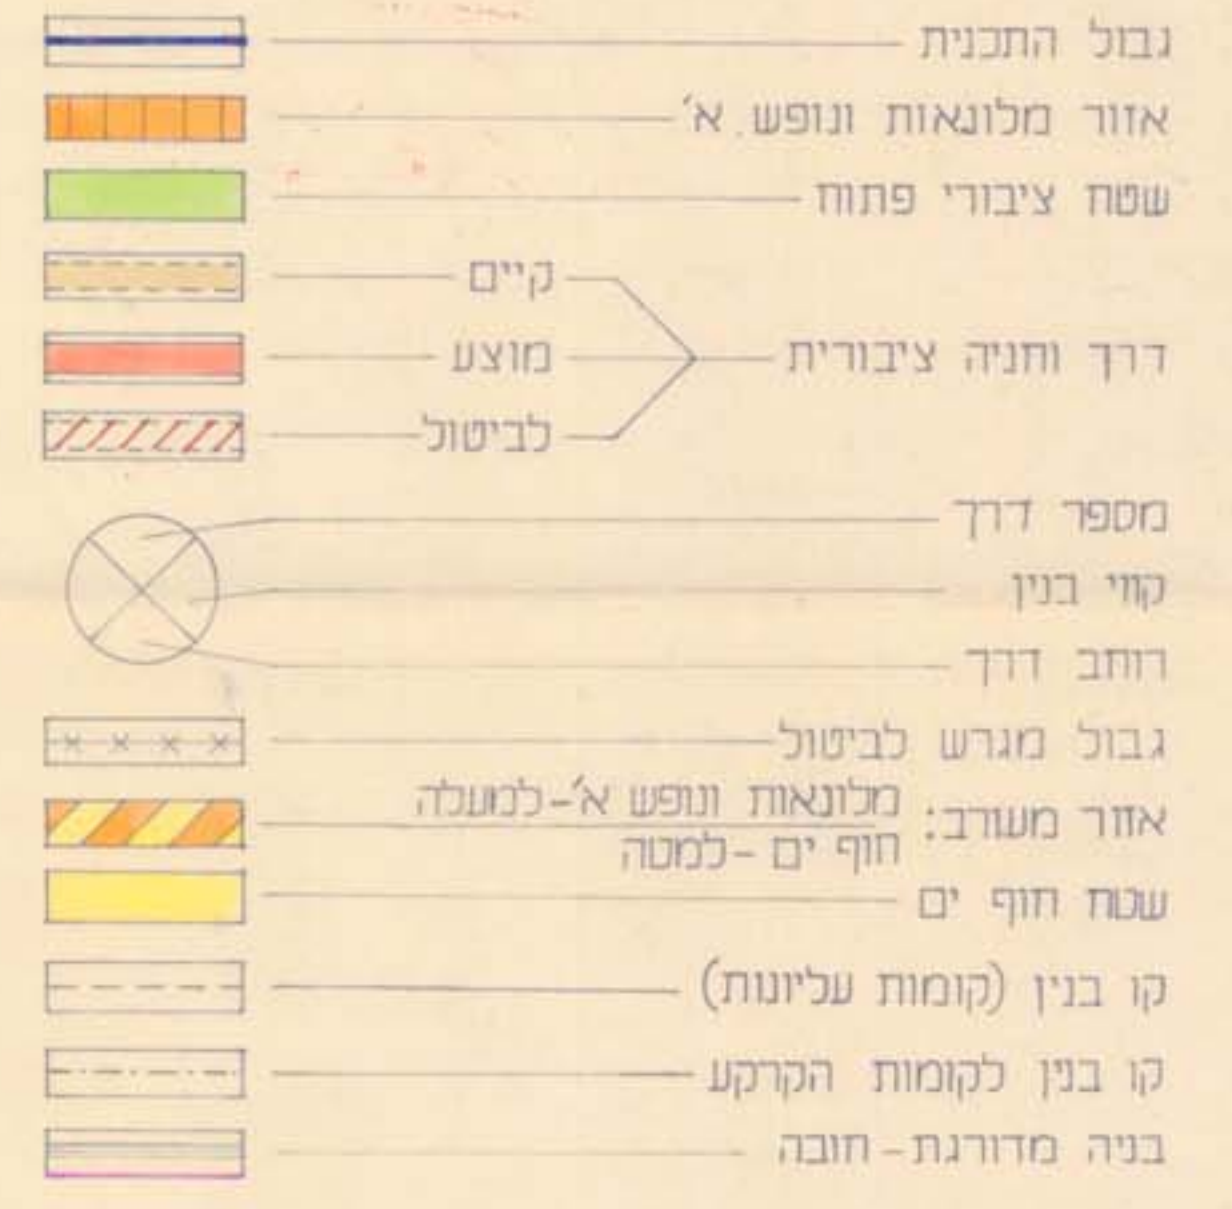 גבול התכנית
אזור מלונאות ונופש א'
שטח ציבורי פתוח
קיים
דרך וחניה ציבורית
מוצע
לביטול
מספר דרך
קווי בנין
רוחב דרך
גבול מגרש לביטול
אזור מעורב: מלונאות ונופש א'-למעלה
חוף ים -למטה
שטח חוף ים
קו בנין (קומות עליונות)
קו בנין לקומות הקרקע
בניה מדורגת-חובה